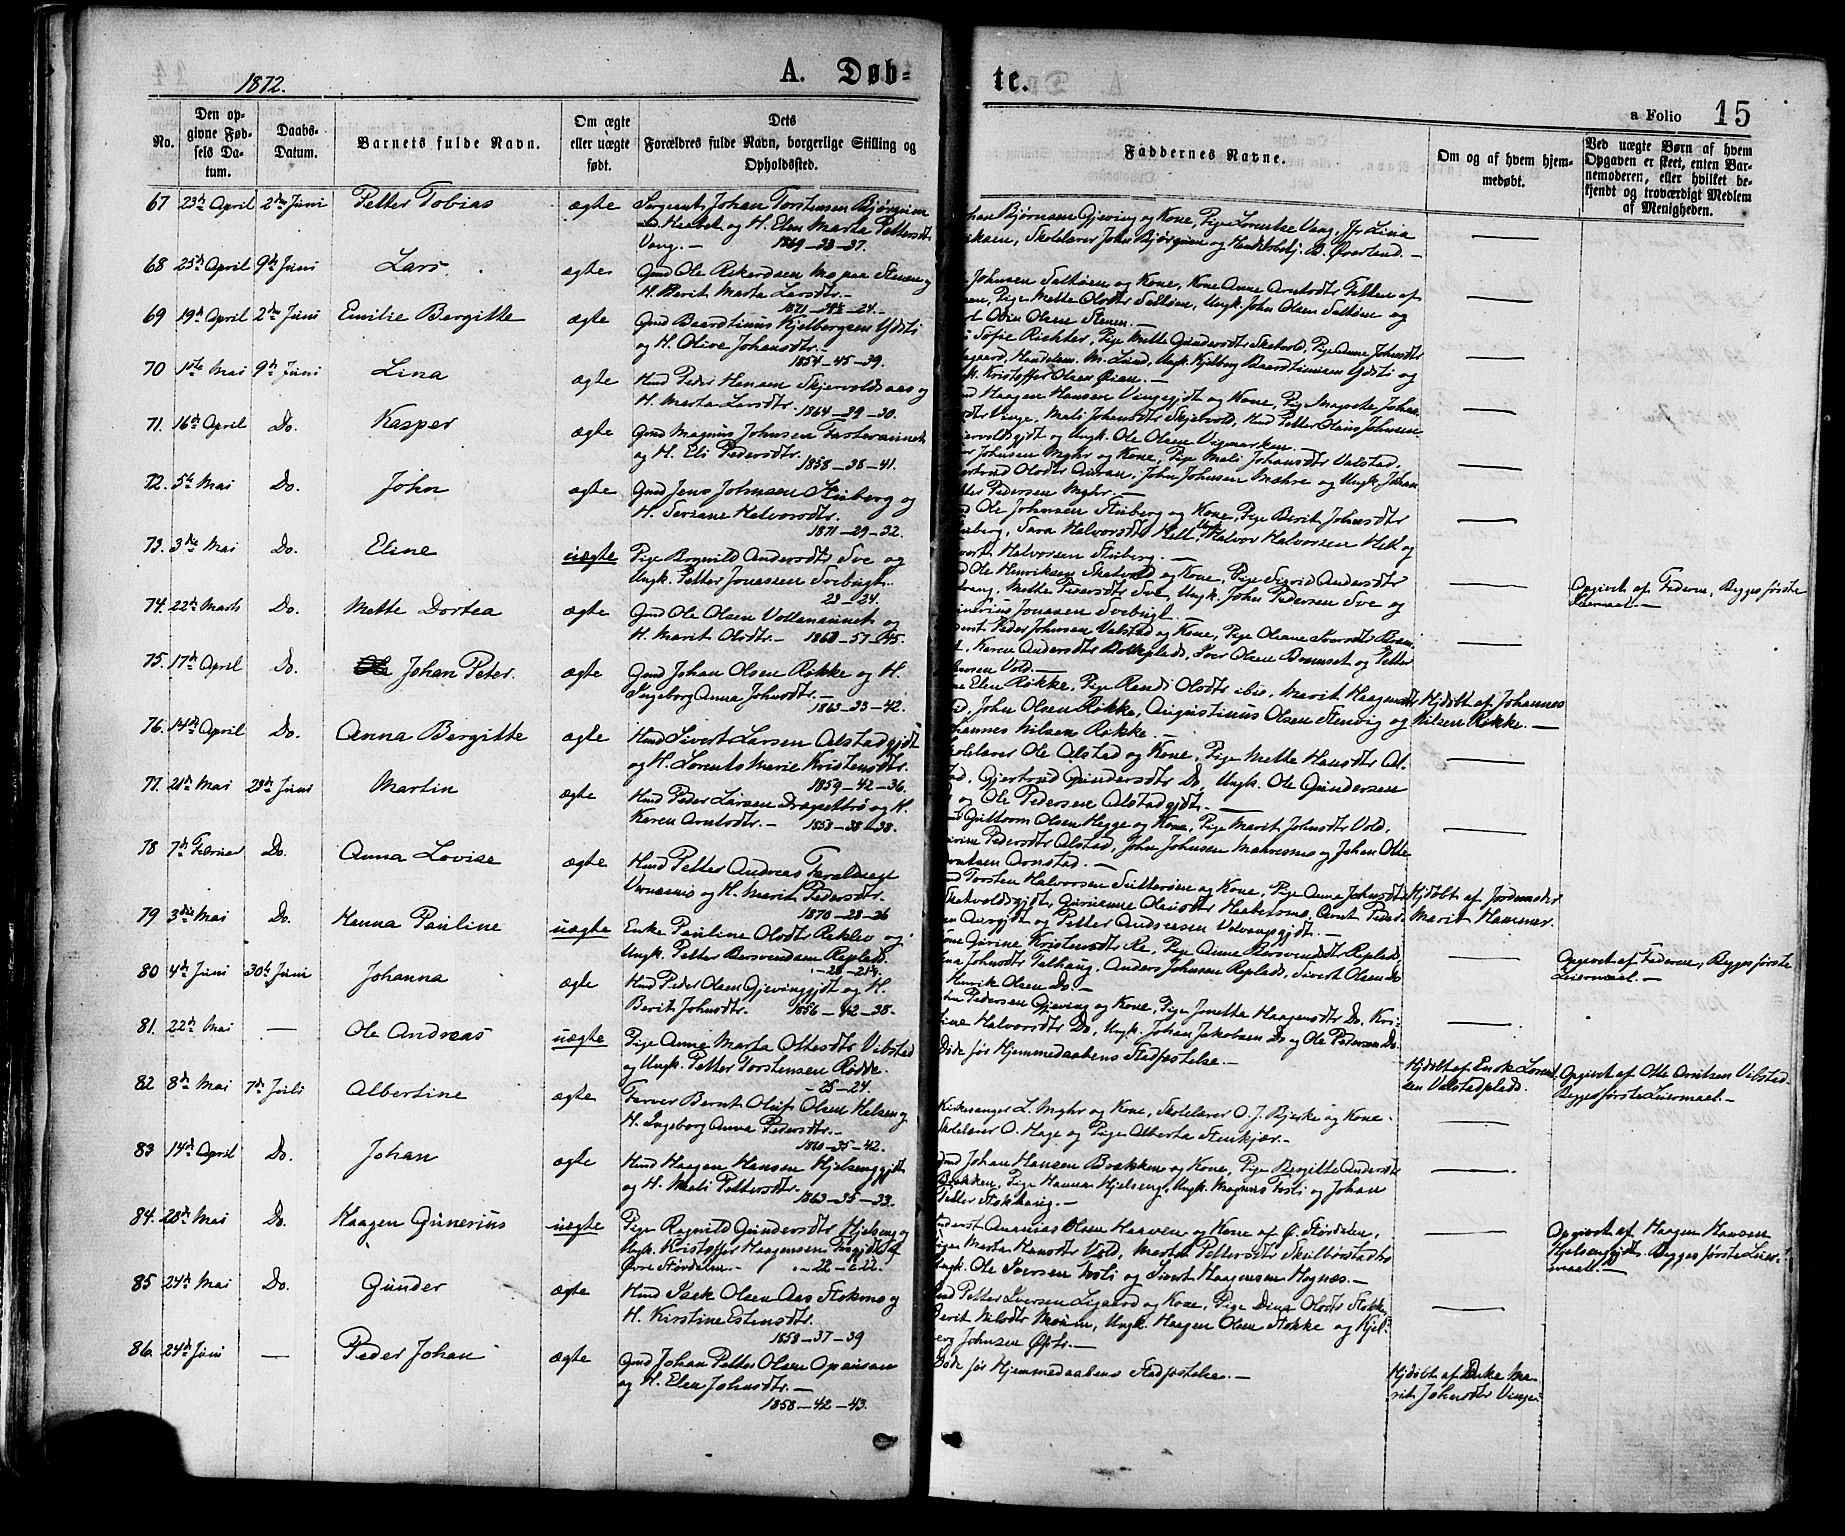 1872.
A. Døb-
te.
a Folio 15
No.
Den op-
givne Fød-
sels Da-
tum.
Daabs-
Datum.
Barnets fulde Navn.
Om ægte
eller uægte
født.
Dets
Forældres fulde Navn, borgerlige Stilling og
Opholdssted.
Faddernes Navne.
Om og af hvem hjem-
medøbt.
Ved uægte Børn af hvem
Opgaven er skeet, enten Bar-
nemoderen, eller hvilket be-
kjendt og troværdigt Medlem
af Menigheden.
67 23de April 2den Juni Petter Tobias ægte Sergeant Johan Torstensen Bjørguim
og H. Elen Marta Pettersdtr
Vang. — 1869-28-27.
Johan Bjørnsen Gjeving og Kone, Pige Lorentse Vang, Jfr Lina
Skolelærer John Bjørguim og Handelsbetj. B. Øverland. —
68 25de April 9de Juni Lars ægte Gmd Ole Rikardsen Mo paa Stenen og
H. Berit Marta Larsdtr. —
1871-24-24.
Johnsen Saltøien og Kone, Kone Anne Arntsdtr Fetten af
Pige Mette Olsdtr Saltøen, Ungk. John Olsen Saltøen og
Odin Olsen Stenen. —
69 19de April 2den Juni Emilie Bergitte ægte Gmd Baardtinus Kjelbergsen Ydsti
og H. Olive Johansdtr. —
1854-45-39.
Sofie Richter, Pige Mette Gundersdtr Skatvold, Pige Anne Johnsdtr
Handelsm. M. Lund, Ungk. Kjelberg Baardtinusen Ydsti og
Ungk. Kristoffer Olsen Øien. —
70 1ste Mai 9de Juni Lina ægte Hmd Peder Hansen Skjervoldsaas og
H. Marta Larsdtr. 1864-39-30.
Haagen Hansen Vingegjdt og Kone, Pige Magrete Johan-
Vinge, Mali Johansdtr Skjervold, Hmd Petter Olaus Johnsen
Skjervoldsgjdt og Ungk. Ole Olsen Vigmarken.
71. 16de April Do. Kasper ægte Gmd Magnus Johnsen Fastevannet
og H. Eli Pedersdtr.
1858-38-41.
Johnsen Myhr og Kone, Pige Mali Johansdtr Valstad,
Olsdtr Auran, John Johnsen Mæhre og Ungk. Johan
Petter Pedersen Myhr. —
72. 5te Mai Do. John ægte Gmd Jens Johnsen Stuberg og
H. Seriane Halvorsdtr.
1871-29-32.
Ole Johnsen Stuberg og Kone, Pige Berit Johnsdtr
Stuberg, Sara Halvorsdtr Hell, Ungk. Halvor Halvorsen Hell og
Sivert Halvorsen Stuberg. —
73. 3die Mai Do. Eline uægte Pige Ragnild Andersdtr Sve og
Ungk. Petter Jonassen Svebugt.
23-24.
Ole Henriksen Skatvold og Kone, Pige Sigrid Andersdtr
Mette Pedersdtr Sve, Ungk. John Pedersen Sve og
Jonassen Svebugt. —
Opgivet af Faderen, Begges første
Leiermaal. —
74. 22de Marts Do. Mette Dortea ægte Gmd Ole Olsen Vollemannet og
H. Marit Olsdtr. — 1860-57-45.
Peder Johnsen Valstad og Kone, Pige Oleane Iversdtr Brem-
Karen Andersdtr Bolkeplads, Iver Olsen Bremset og Petter
Vold. —
75. 17de April Do. Johan Peter. ægte Gmd Johan Olsen Røkke og H.
Ingeborg Anna Johnsdtr. —
1863-33-42.
Elen Røkke, Pige Randi Olsdtr ibid, Marit Haagensdtr,
John Olsen Røkke, Augustinus Olsen Stenvig og
Johannes Nilsen Røkke. —
Hjdøbt af Johannes
Nilsen Røkke. —
76. 14de April Do. Anna Bergitte ægte Hmd Sivert Larsen Alstadgjdt
og H. Lorents Marie Kristensdtr.
1859-42-36.
Skolelærer Ole Alstad og Kone, Pige Mette Hansdtr Al-
stad, Gjertrud Gundersdtr Do, Ungk. Ole Gundersen
og Ole Pedersen Alstadgjdt. —
77. 21de Mai 29de Juni Martin ægte Hmd Peder Larsen Drogsettrø og H.
Karen Arntsdtr. — 1853-38-38.
Guttorm Olsen Hegge og Kone, Pige Marit Johnsdtr Vold,
Pedersdtr Alstad, John Johnsen Mæhresmo og Johan Otto
Arntsen Arnstad. —
78 7de Februar Do. Anna Lovise ægte Hmd Petter Andreas Taraldsen
Vernesmo og H. Marit Pedersdtr.
1870-28-26
Torsten Halvorsen Sutterøen og Kone, Pige Anna Johnsdtr
Skatvoldsgjdt, Guruanne Olausdtr Haabetsmo, Arnt Peder-
sen Aursgjdt og Petter Andersen Velvangsgjdt. —
Hjdøbt af Jordemoder
Marit Hammer.
79 3die Mai Do. Hanna Pauline uægte Enke Pauline Olsdtr Reklev og
Ungk. Petter Bersvendsen Replads.
— 28-24.
Kone Gurine Kristensdtr Re, Pige Anne Bersvendsdtr Replads,
Johnsdtr Talhaug, Anders Johnsen Replads, Sivert Olsen Do
Henrik Olsen Do. —
Opgivet af Faderen, Begges første
Leiermaal. —
80 4de Juni 30te Juni Johanna ægte Hmd Peder Olsen Gjevinggjdt og H.
Berit Johnsdtr. 1856-42-38.
Pedersen Gjeving og Kone, Pige Jonetta Haagensdtr Do, Kri-
stine Halvorsdtr Do, Ungk. Johan Jakobsen Do og Ole Pedersen Do.
81. 22de Mai — Ole Andreas uægte Pige Anne Marta Ottesdtr Vibstad
og Ungk. Petter Torstensen Rødde.
— 25-24.
Døde før Hjemmedaabens Stadfæstelse. —
Hjdøbt af Enke Lorent-
sen Valstadplads.
Opgivet af Otte Arntsen Vibstad.
Begges første Leiermaal. —
82 8de Mai 7de Juli Albertine ægte Farver Bernt Oluf Olsen Halsen og
H. Ingeborg Anna Pedersdtr. —
1860-35-42.
Kirkesanger L. Myhr og Kone, Skolelærer O. J. Bjerke og Kone
Skolelærer O. Hage og Pige Alberta Stenkjær. —
83 14de April Do. Johan ægte Hmd Haagen Hansen Hjelsenggjdt
og H. Mali Pettersdtr.
1863-35-33.
Gmd Johan Hansen Brækken og Kone, Pige Bergitte Andersdtr
Brækken, Pige Hanna Hjelseng, Ungk. Magnus Tosti og Johan
Petter Stokhaug. —
84. 28de Mai Do. Haagen Gunerius uægte Pige Ragnild Gundersdtr Hjelseng og
Ungk. Kristoffer Haagensen Fuggjdt af
Øvre Størdalen. — 22-22.
Ananias Olsen Haaven og Kone af Ø. Størdalen,
Pigen Marta Hansdtr Vold, Marta Pettersdtr Skulbørstadbo
Ungk. Ole Iversen Tosti og Sivert Haagensen Hognæs. —
Opgivet af Haagen Hansen
Hjelsenggjdt. Begges første Leier-
maal. —
85 24de Mai Do. Gunder ægte Hmd Isak Olsen Aas Stokmo og
H. Kirstine Estensdtr.
1858-37-39
Petter Iversen Ligaard og Kone, Pige Dina Olsdtr Stokke,
Berit Nilsdtr Moum, Ungk. Haagen Olsen Stokke og Kjel-
berg Johnsen Øfti. —
86. 24de Juni — Peder Johan ægte Gmd Johan Petter Olsen Opauran
og H. Elen Johnsdtr. —
1858-42-43.
Døde før Hjemmedaabens Stadfæstelse. —
Hjdøbt af Enke Ma-
rit Johnsdtr Vinge